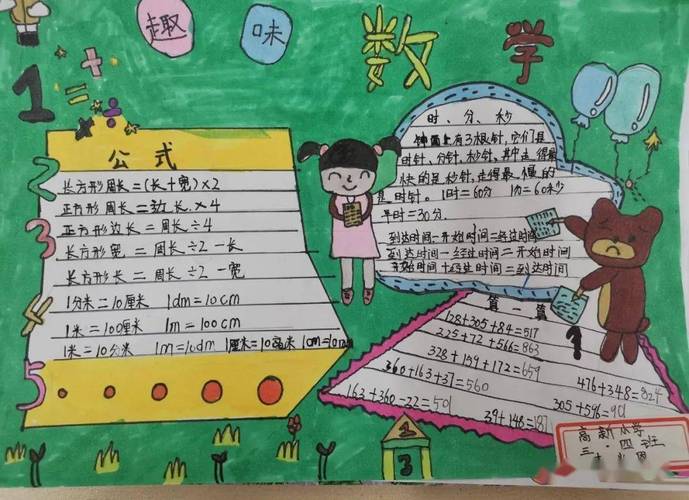 趣味数学
1
+
=
÷
2
3
4
5
公式
长方形周长=(长+宽)×2
正方形周长=边长×4
正方形边长=周长÷4
长方形宽=周长÷2-长
长方形长=周长÷2-宽
1分米=10厘米 1dm=10cm
1米=100厘米 1m=100cm
1米=10分米 1m=10dm 1厘米=10毫米
时、分、秒
钟面上有3根针,它们是
时针、分针、秒针,其中走得最
快的是秒针,走得最慢的
是时针。1时=60分
半时=30分
到达时间-开始时间=经过时间
到达时间-经过时间=开始时间
开始时间+经过时间=到达时间
算一算
128+305+84=517
225+72+566=863
328+159+172=659
360+163+37=560
476+348=824
163+360-22=501
305+596=901
39+148=187
1
1
2
3
高新小学
三.四班